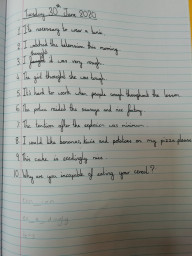 Tuesday 30th June 2020
1. It's necessary to wear a
2. I watched the television this morning.
thought
3. I it was very rough.
4. The girl thought she was tough.
5. It's hard to work when people cough throughout the lesson.
6. The police raided the and factory.
7. The after the explosion was minimum.
8. I would like bananas, and potatoes on my pizza please.
9. This cake is exceedingly nice.
10. Why are you incapable of eating your cereal?